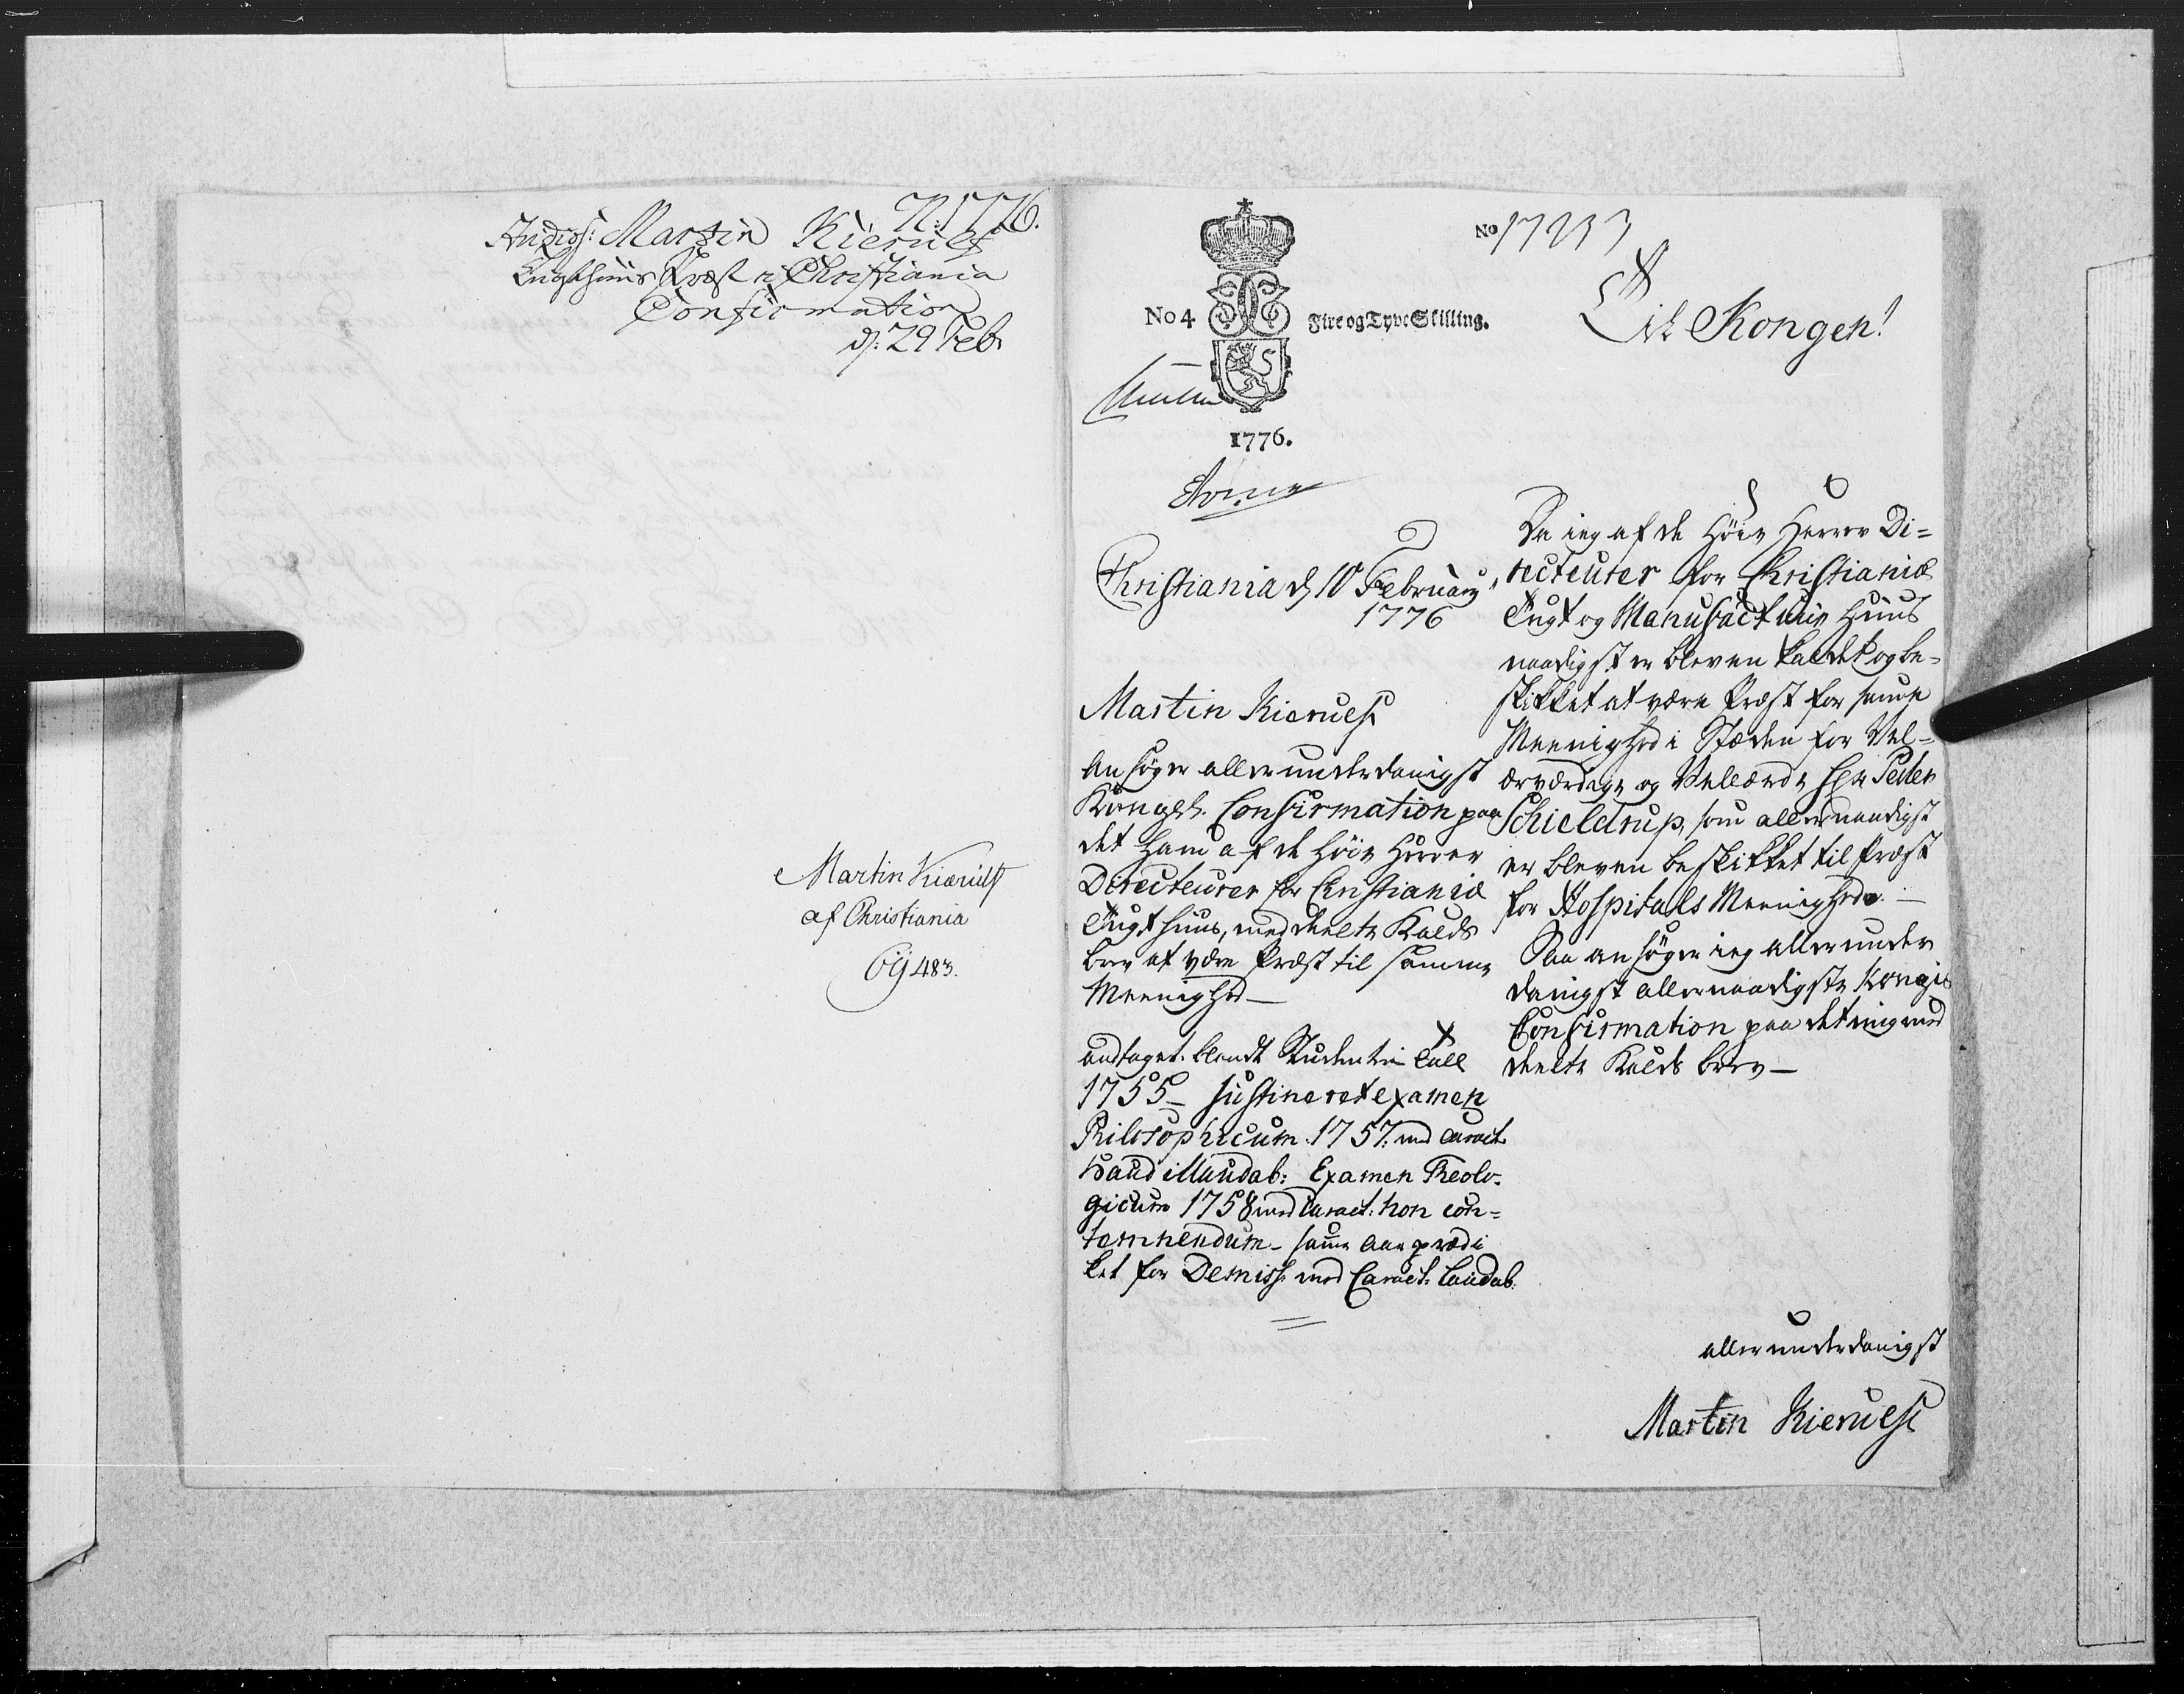 N: 1776.
Studios: Martin Kierulf
Tugthuus Præst i Christiania
Confirmation
d: 29 Feb
Martin Kierulf
af Christiania
Og 483.
No 4
Fire og Tyve Skilling.
1776.
No 17233
Til Kongen!
Christiania d 10 February
1776
Martin Kierulf
ansøger allerunderdanigst
Kongel. Confirmation paa
det ham af de Høie Herrer
Directeurer for Christianiæ
Tugthuus, meddeelte Kalds
brev at være Præst til samme
Meenighed —
antaget blandt Studenterne
1755 — sustineret examen
Philosophicum 1757. med caract.
haud illaudab: Examen Theolo-
gicum 1758 med Caract: non con=
temnendum — samme Aar prædi
ket for Demiss. med Caract. laudab.
Da ieg af de Høie Herrer Di=
recteurer for Christianiæ
Tugt og Manufactur Huus
naadigst er bleven kaldet og be=
skikket at være Præst for samme
Meenighed i Stæden for Vel=
ærværdige og Vellærde Hr Peder
Schieldrup, som allernaadigst
er bleven beskikket til Præst
for Hospitals Meenighed. —
Saa ansøger ieg allerunder
danigst allernaadigste Kongel.
Confirmation paa det mig med
deelte Kalds brev —
allerunderdanigst
Martin Kierulf